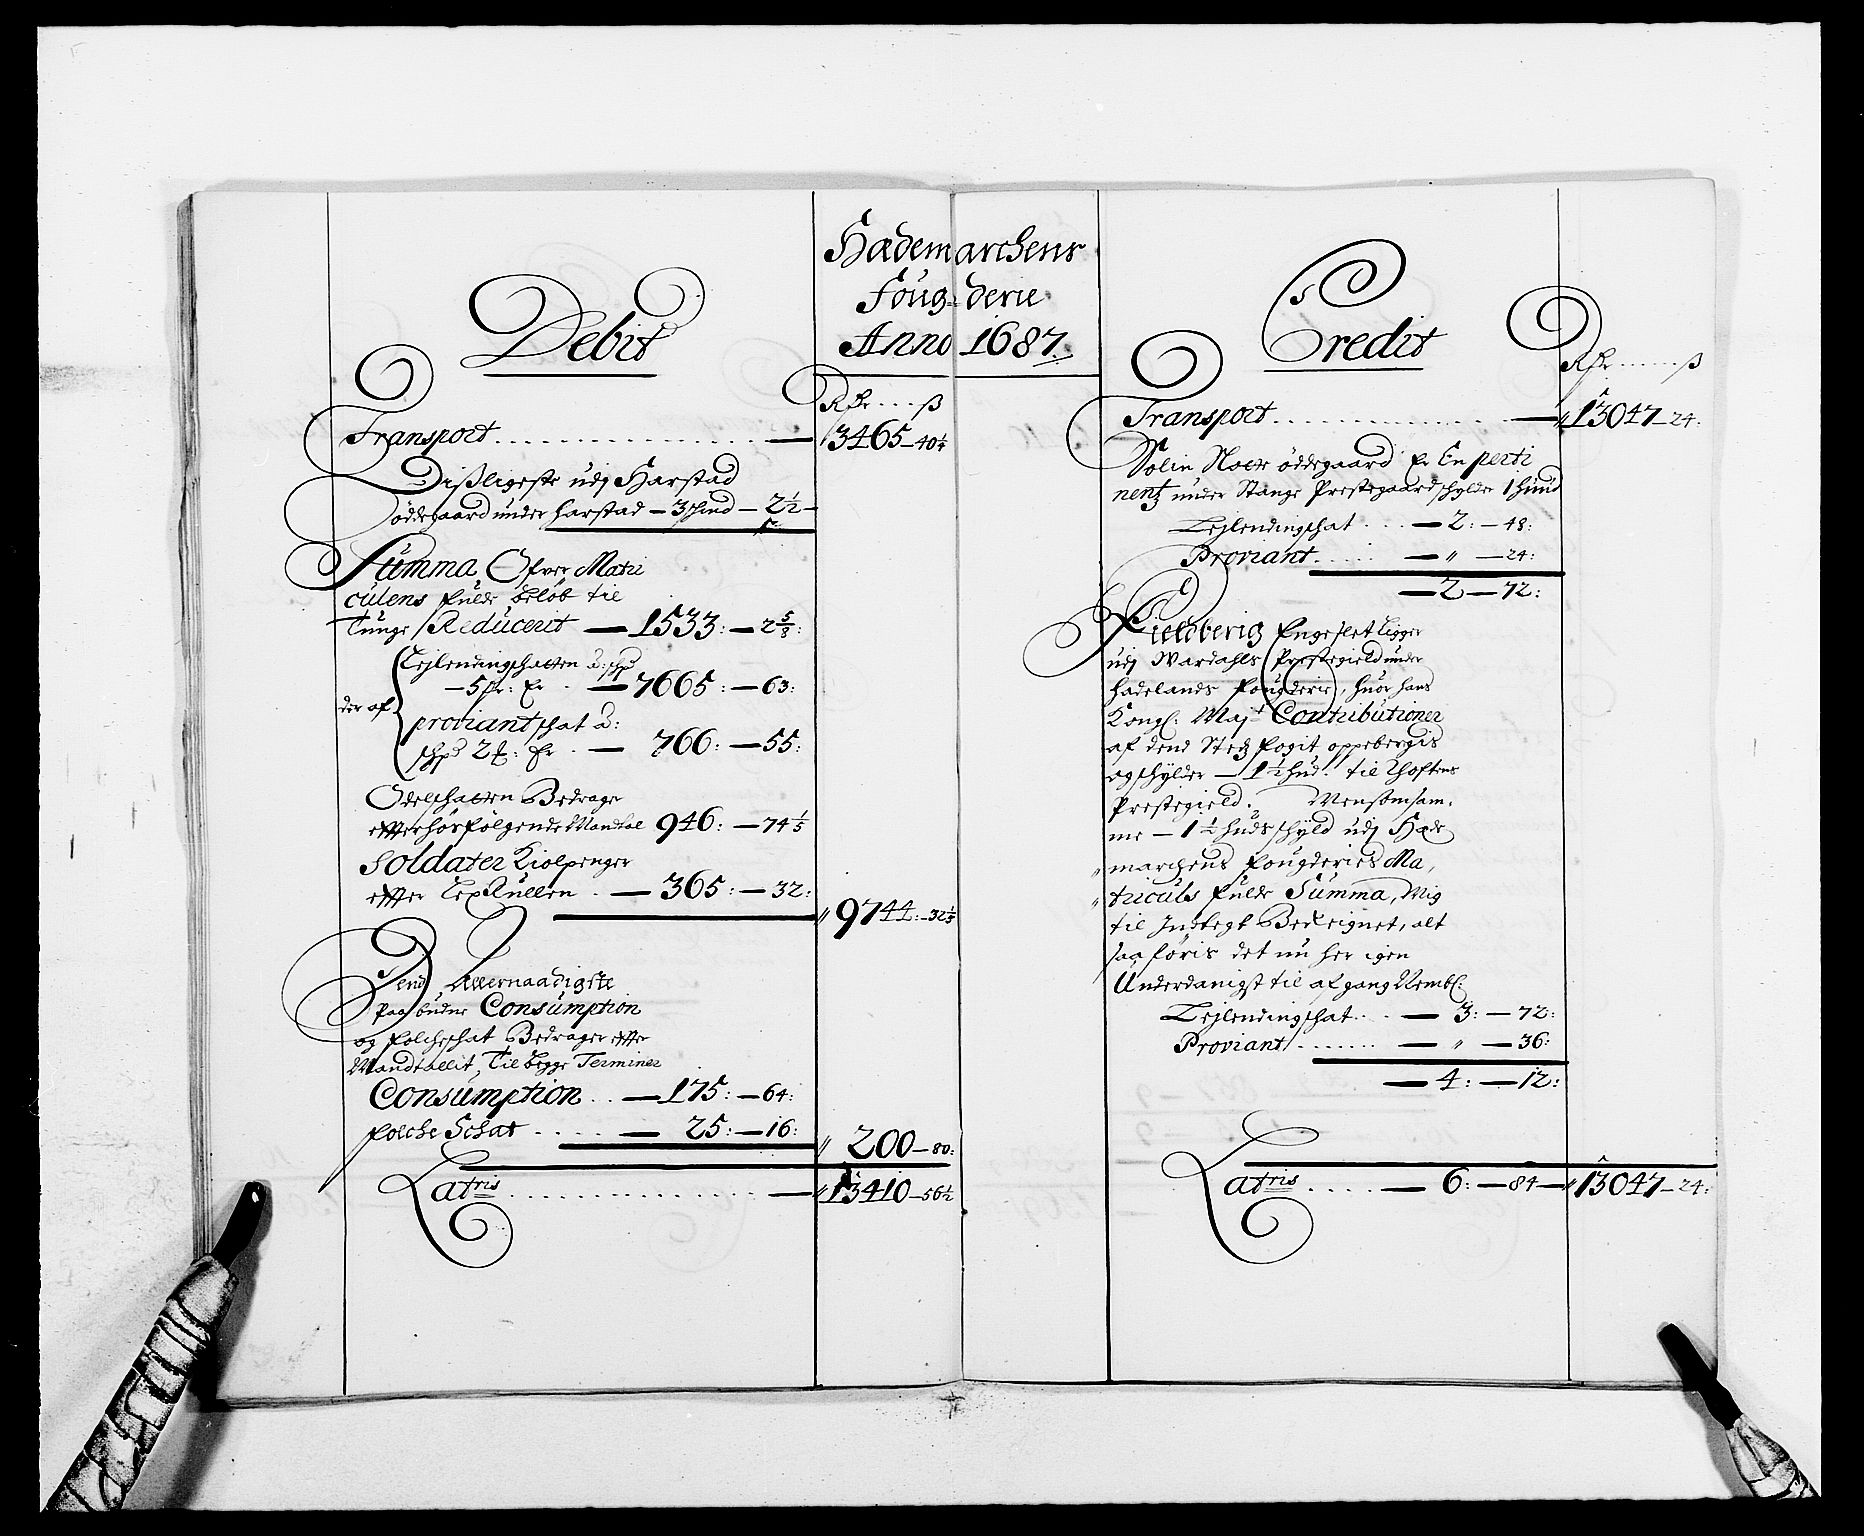 Hædemarchens
Foug-derie
Anno 1687.
Debit
Rdr .... ß
Transport ............... — 3465 — 40¼
Dißligeste udj Harstad
øddegaard under harstad — 3 schind — 2½ —
Summa Ofver Matri
culens fulde beløb til
Tunge Reducerit — 1533: — 2 5/8:
der af
Lejlendingschatten â: schp
— 5 ß: Er . — 7665: — 63:
proviantschat â:
schp 2 ß: Er . — 766: — 55:
Odelschatten Bedrager
effter hosfølgende Mandtal 946: — 74⅕
Soldater Kiolpenger
effter Leg Rullen . — 365: — 32:
" 9744: — 32⅕
Dend Allernaadigste
Paabudne Consumption
og folcheschat Bedrager effter
Mandtallit, Til begge Terminer
Consumption .. — 175: — 64:
folche Schat ..... — 25: — 16:
" 200 — 80:
Latris ................ — " 13410 — 56½
Credit
Rdr ...... ß
Transport ................ — " 13047 — 24:
Solin Noer øddegaard Er En perti
nentz under Stange Prestegaard schylder 1 huud
Lejlendingschat ... — 2: — 48:
Proviant ..... — " — 24:
— 2 — 72:
Fieldberig Engeslet Ligger
udj Wardahls Prestegield under
hadelands fougderie, huor hans
Kongl: Majt Contributioner
af dend Stedz fogit oppebergis
og schylder — 1½ hud. til Thoftens
Prestegield. Men som sam,
me — 1½ huds schyld udj Hæde
" marchens fougderies Ma,
" triculs fulde Summa, Mig
til Indtegt Beregnet, alt
saa føris det nu her igen
Underdanigst til afgang Nembl:
Lejlendingschat ... — 3: — 72:
Proviant ....... — " — 36:
— 4: — 12:
Latris ..... — 6: — 84 — " 13047 — 24: